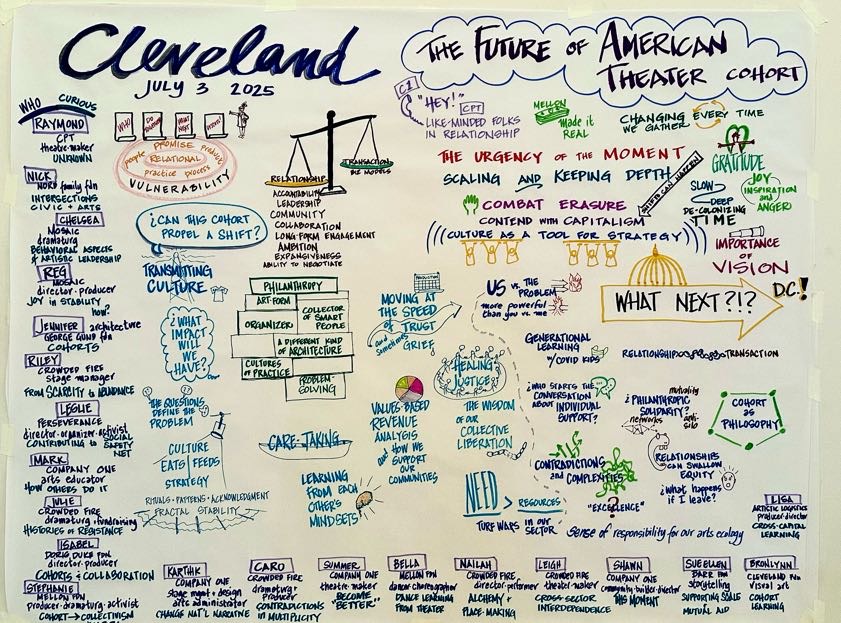 Cleveland
JULY 3 2025
THE FUTURE OF AMERICAN
THEATER COHORT
WHO CURIOUS
RAYMOND
CPT
theatre-maker
UNKNOWN
NICK
NORD family fdn
INTERSECTIONS
CIVIC + ARTS
CHELSEA
MOSAIC
dramaturg
BEHAVIORAL ASPECTS
& ARTISTIC LEADERSHIP
REG
MOSAIC
director·producer
JOY IN STABILITY
how?
JENNIFER architecture
GEORGE GUND fdn
COHORTS
RILEY
CROWDED FIRE
stage manager
FROM SCARCITY to ABUNDANCE
LESLIE
PERSEVERANCE
director-organizer-activist
CONTRIBUTING to SOCIAL
SAFETY
NET
MARK
COMPANY ONE
arts educator
HOW OTHERS DO IT
JULIE
CROWDED FIRE
dramaturg·fundraising
HISTORIES OF RESISTANCE
ISABEL
DORIS DUKE FDN
director·producer
COHORTS & COLLABORATION
STEPHANIE
MELLON FDN
producer·dramaturg·activist
COHORT → COLLECTIVISM
WHAT NEXT
people PROMISE produce
RELATIONAL
practice process
VULNERABILITY
¿CAN THIS COHORT
PROPEL A SHIFT?
TRANSMITTING
CULTURE
¿WHAT
IMPACT
WILL
WE
HAVE?
THE QUESTIONS
DEFINE THE
PROBLEM
CULTURE
EATS FEEDS
STRATEGY
RITUALS·PATTERNS·ACKNOWLEDGMENT
FRACTAL STABILITY
RELATIONSHIP
TRANSACTION
BIZ MODELS
ACCOUNTABILITY
LEADERSHIP
COMMUNITY
COLLABORATION
LONG-FORM ENGAGEMENT
AMBITION
EXPANSIVENESS
ABILITY TO NEGOTIATE
PHILANTHROPY
ART-FORM
COLLECTOR
OF SMART
PEOPLE
ORGANIZER
A DIFFERENT KIND
OF ARCHITECTURE
CULTURES
OF PRACTICE
PROBLEM-
SOLVING
CARE-TAKING
LEARNING
FROM EACH
OTHER'S
MINDSETS
PRODUCTION
MOVING AT
THE SPEED
OF TRUST
and sometimes
GRIEF
HEALING
JUSTICE
VALUES-BASED
REVENUE
ANALYSIS
and HOW WE
SUPPORT
OUR
COMMUNITIES
THE WISDOM
OF OUR
COLLECTIVE
LIBERATION
NEED > RESOURCES
TURF WARS IN OUR
SECTOR
"HEY!" CPT
LIKE-MINDED FOLKS
IN RELATIONSHIP
MELLON
made it
REAL
CHANGING EVERY TIME
WE GATHER
THE URGENCY OF THE MOMENT
SCALING AND KEEPING DEPTH
COMBAT ERASURE
CONTEND WITH CAPITALISM
CULTURE AS A TOOL FOR STRATEGY
GRATITUDE
JOY
INSPIRATION
and
ANGER!
SLOW
DEEP
DE-COLONIZING
TIME
IMPORTANCE
OF
VISION
WHAT NEXT?!?
D.C.!
US vs. THE
PROBLEM
more powerful
than you vs. me
GENERATIONAL
LEARNING
w/COVID KIDS
RELATIONSHIP TRANSACTION
¿WHO STARTS THE
CONVERSATION
ABOUT INDIVIDUAL
SUPPORT?
¿PHILANTHROPIC
SOLIDARITY?
networks
anti-
silo
COHORT
AS
PHILOSOPHY
RELATIONSHIPS
CAN SWALLOW
EQUITY
¿What happens
if I leave?
CONTRADICTIONS
and COMPLEXITIES
"EXCELLENCE"
sense of responsibility for our arts ecology
LISA
ARTISTIC LOGISTICS
producer·director
CROSS-CAPITAL
LEARNING
KARTHIK
COMPANY ONE
stage mgmt + design
arts administrator
CHANGE NAT'L NARRATIVE
CARO
CROWDED FIRE
dramaturg+
producer
CONTRADICTIONS
IN MULTIPLICITY
SUMMER
COMPANY ONE
theatre-maker
BECOME
"BETTER"
BELLA
MELLON FDN
dance·choreographer
DANCE LEARNING
FROM THEATER
NAILAH
CROWDED FIRE
director·performer
ALCHEMY +
PLACE-MAKING
LEIGH
CROWDED FIRE
theater-maker
CROSS SECTOR
INTERDEPENDENCE
SHAWN
COMPANY ONE
community-builder·director
THIS MOMENT
SUE ELLEN
BARR FDN
storytelling
SUPPORTING SCALE
MUTUAL AID
BRONLYNN
CLEVELAND FDN
visual art
COHORT
LEARNING